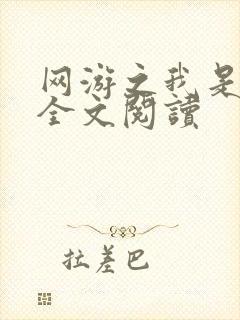 网游之我是
全文閱讀
拉差巴